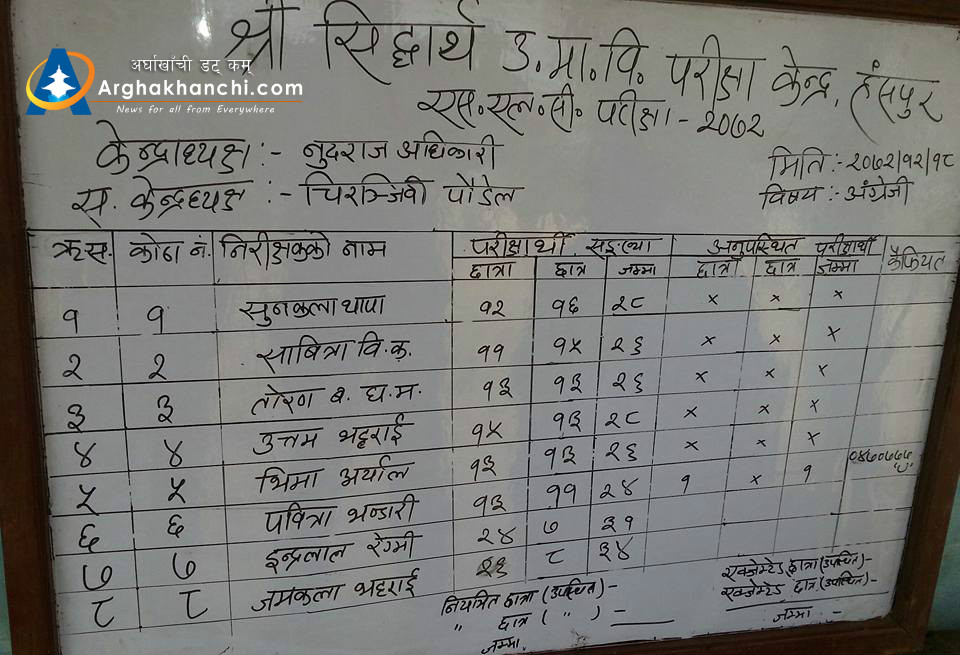 श्री सिद्धार्थ उ.मा.वि. परीक्षा केन्द्र, हंसपुर
अर्घाखाँची डट् कम्
Arghakhanchi.com
News for all from Everywhere
एस.एल.सी. परीक्षा - २०७२
केन्द्राध्यक्ष :- नुदराज अधिकारी
मिति :- २०७२/१२/१८
स. केन्द्रध्यक्ष :- चिरञ्जिवी पौडेल
विषय :- अंग्रेजी
क्र.स. कोठा नं. निरीक्षकको नाम परीक्षार्थी सङ्ख्या अनुपस्थित परीक्षार्थी कैफियत
छात्रा छात्र जम्मा छात्रा छात्र जम्मा
१ १ सुनकला थापा १२ १६ २८ × × ×
२ २ सावित्रा वि.क. ११ १५ २६ × × ×
३ ३ तोरण ब. घ.म. १३ १३ २६ × × ×
४ ४ उत्तम भट्टराई १५ १३ २८ × × ×
५ ५ भिमा अर्याल १३ १३ २६ × × ×
६ ६ पवित्रा भण्डारी १३ ११ २४ १ × १
७ ७ इन्द्रलाल रेग्मी २४ ७ ३१
८ ८ जमकला भट्टराई २६ ८ ३४
नियमित छात्रा (उपस्थित) -
" छात्र ( " ) -
जम्मा
एक्जेम्टेड छात्रा (उपस्थित) -
एक्जेम्टेड छात्र (उपस्थित) -
जम्मा -